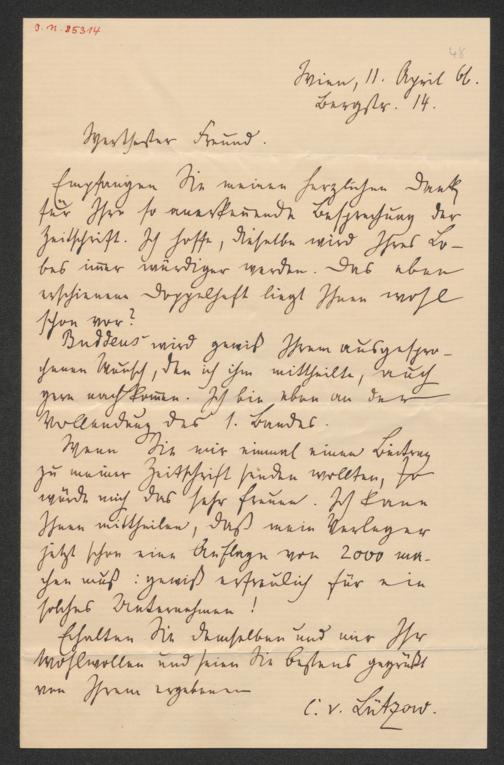 J. N. 85314
48
Wien, 11. April 66.
Bergstr. 14.
Werthester Freund.
Empfangen Sie meinen herzlichen Dank
für Ihre so anerkennende Besprechung der
Zeitschrift. Ich hoffe, dieselbe wird Ihres Lo-
bes immer würdiger werden. Das eben
erschienene Doppelheft liegt Ihnen wohl
schon vor?
Buddeus wird gewiß Ihrem ausgespro-
chenen Wunsch, den ich ihm mittheilte, auch
gern nachkommen. Ich bin eben an der
Vollendung des 1. Bandes.
Wenn Sie mir einmal einen Beitrag
zu meiner Zeitschrift senden wollten, so
würde mich das sehr freuen. Ich kann
Ihnen mittheilen, daß mein Verleger
jetzt schon eine Auflage von 2000 ma-
chen muß: gewiß erfreulich für ein
solches Unternehmen!
Erhalten Sie demselben und mir Ihr
Wohlwollen und seien Sie bestens gegrüßt
von Ihrem ergebenen
C. v. Lützow.